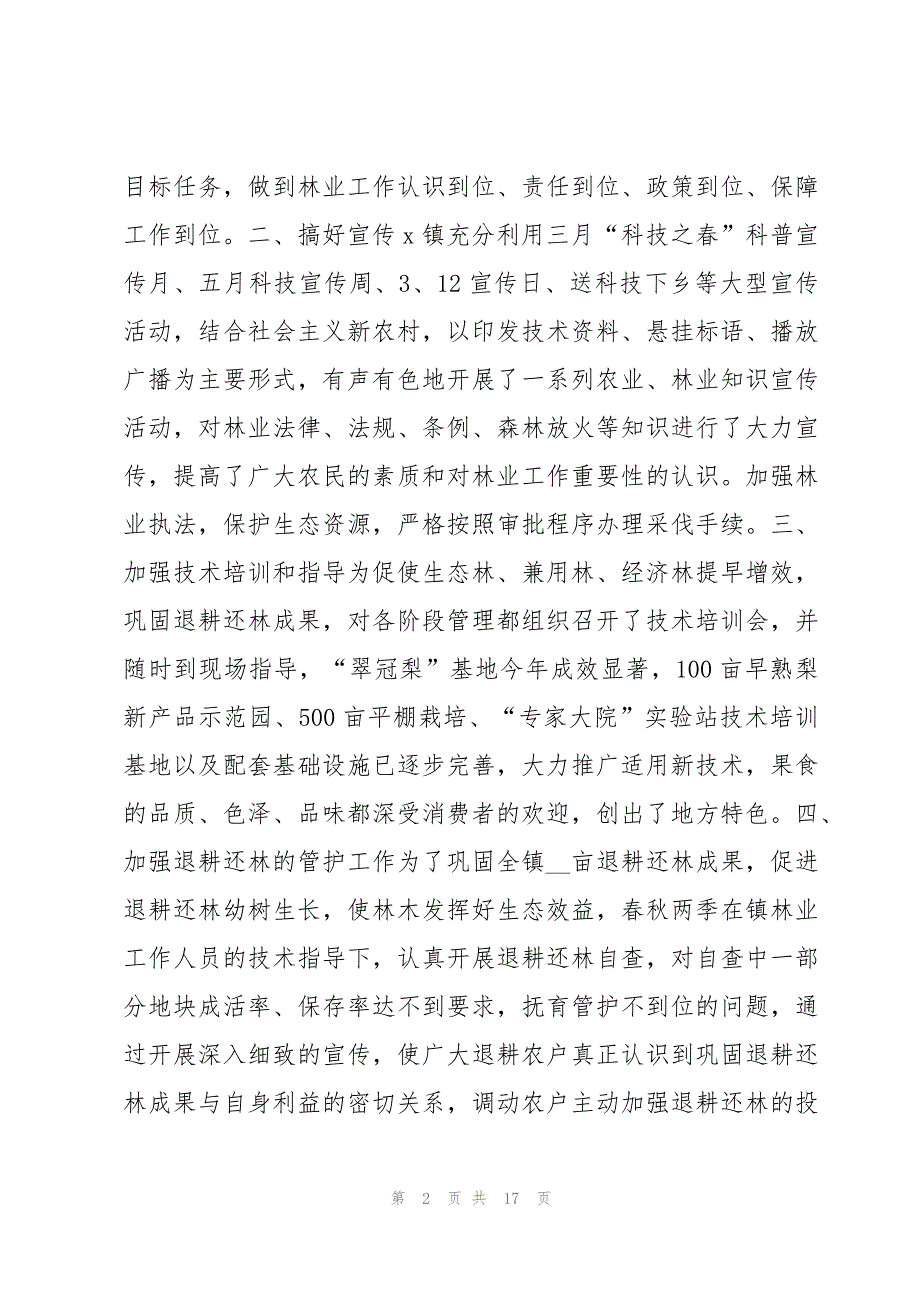 目标任务，做到林业工作认识到位、责任到位、政策到位、保障
工作到位。二、搞好宣传 x 镇充分利用三月“科技之春”科普宣
传月、五月科技宣传周、3、12 宣传日、送科技下乡等大型宣传
活动，结合社会主义新农村，以印发技术资料、悬挂标语、播放
广播为主要形式，有声有色地开展了一系列农业、林业知识宣传
活动，对林业法律、法规、条例、森林放火等知识进行了大力宣
传，提高了广大农民的素质和对林业工作重要性的认识。加强林
业执法，保护生态资源，严格按照审批程序办理采伐手续。三、
加强技术培训和指导为促使生态林、兼用林、经济林提早增效，
巩固退耕还林成果，对各阶段管理都组织召开了技术培训会，并
随时到现场指导，“翠冠梨”基地今年成效显著，100 亩早熟梨
新产品示范园、500 亩平棚栽培、“专家大院”实验站技术培训
基地以及配套基础设施已逐步完善，大力推广适用新技术，果食
的品质、色泽、品味都深受消费者的欢迎，创出了地方特色。四、
加强退耕还林的管护工作为了巩固全镇__亩退耕还林成果，促进
退耕还林幼树生长，使林木发挥好生态效益，春秋两季在镇林业
工作人员的技术指导下，认真开展退耕还林自查，对自查中一部
分地块成活率、保存率达不到要求，抚育管护不到位的问题，通
过开展深入细致的宣传，使广大退耕农户真正认识到巩固退耕还
林成果与自身利益的密切关系，调动农户主动加强退耕还林的投
第 2 页 共 17 页